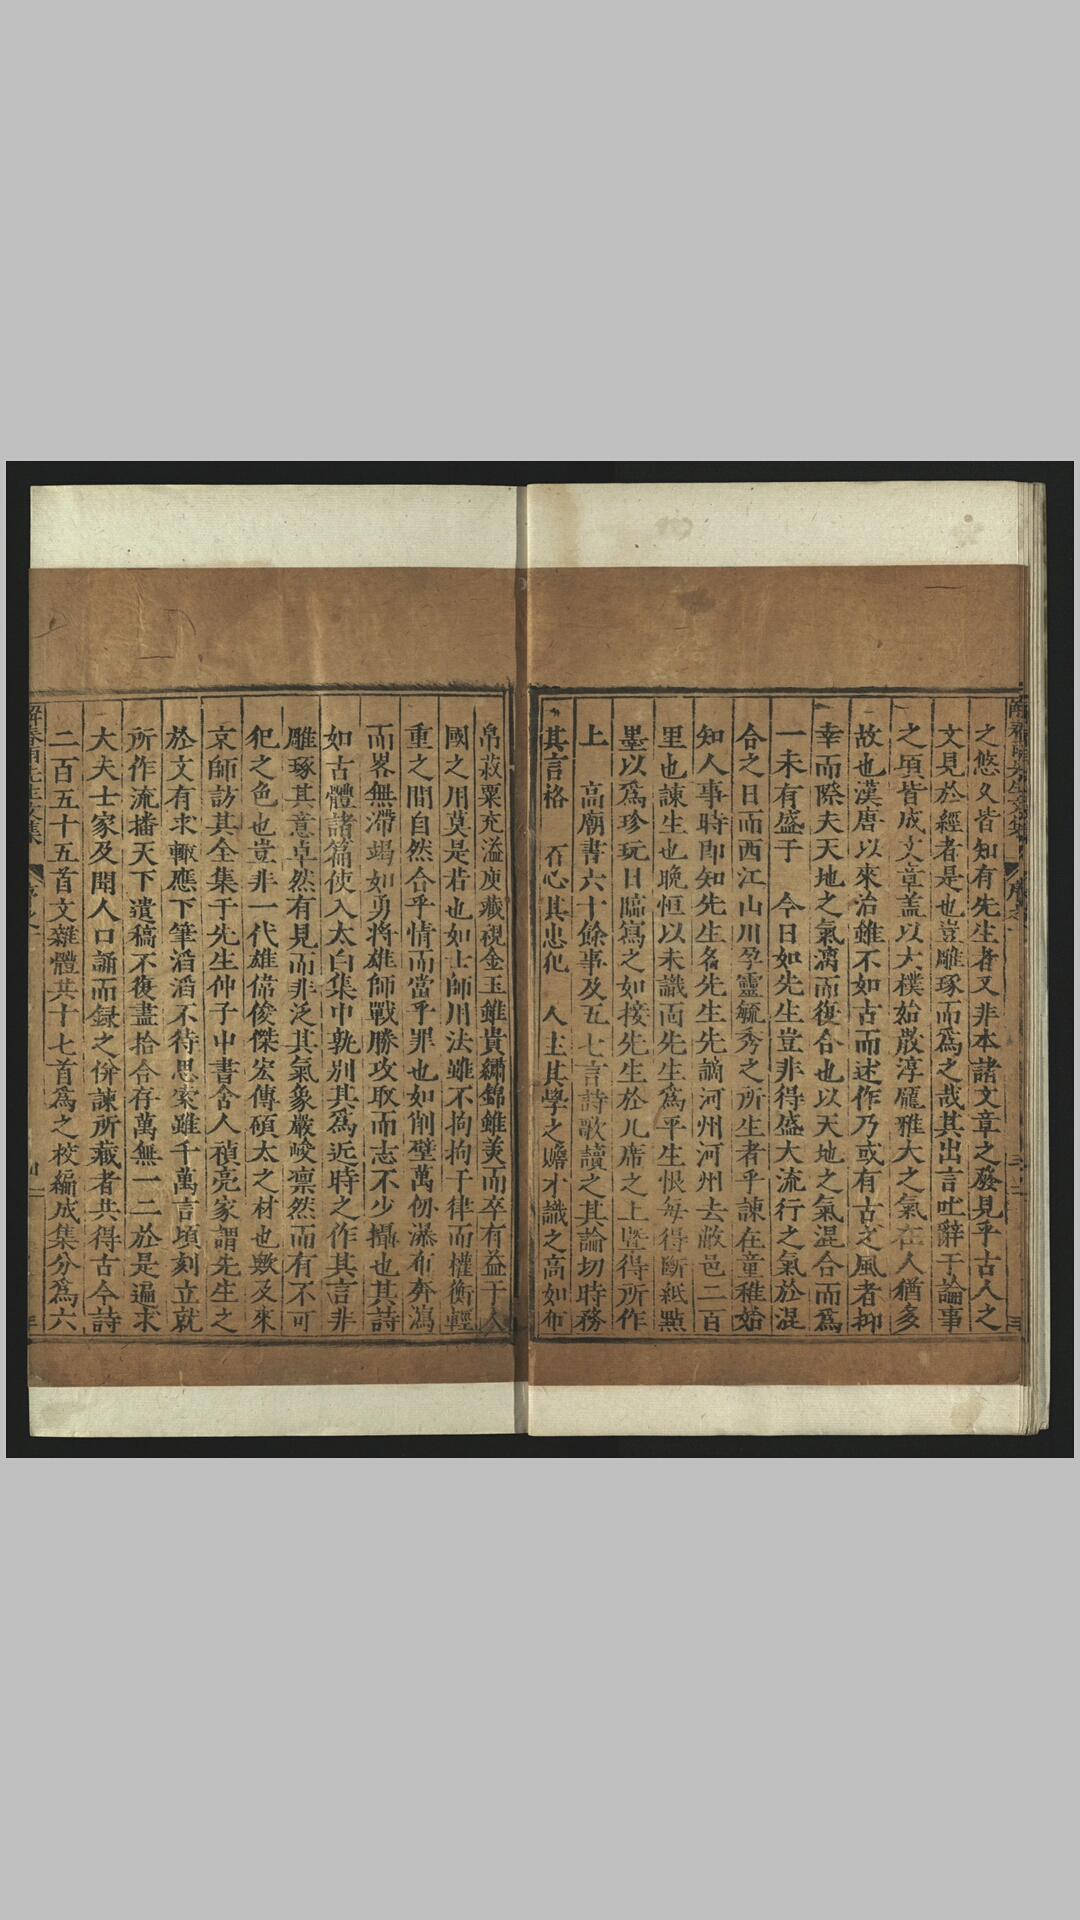 之悠久皆知有先生者又非本諸文章之發見乎古人之
文見於經者是也豈雕琢而為之哉其出言吐辭于論事
之頃皆成文章盖以大樸始散淳龐雅大之氣在人猶多
故也漢唐以來治雖不如古而述作乃或有古之風者抑
幸而際夫天地之氣漓而復合也以天地之氣混合而為
一未有盛于 今日如先生豈非得盛大流行之氣於混
合之日而西江山川孕靈毓秀之所生者乎諫在童稚始
知人事時即知先生名先生先謫河州河州去敝邑二百
里也諫生也晚恒以未識面先生為平生恨每得斷紙點
墨以為珍玩日臨寫之如接先生於几席之上暨得所作
上 高廟書六十餘事及五七言詩歌讀之其論切時務
其言格 君心其忠犯 人主其學之贍才識之高如布
帛菽粟充溢庾藏視金玉雖貴繡錦雖美而卒有益于人
國之用莫是若也如士師用法雖不拘拘于律而權衡輕
重之間自然合乎情而當乎罪也如削壁萬仞瀑布奔瀉
而畧無滯竭如勇將雄師戰勝攻取而志不少攝也其詩
如古體諸篇使入太白集中孰别其為近時之作其言非
雕琢其意卓然有見而非泛其氣象嚴峻凛然而有不可
犯之色也豈非一代雄偉俊傑宏傳碩大之材也歟及來
京師訪其全集于先生仲子中書舍人禎亮家謂先生之
於文有求輒應下筆滔滔不待思索雖千萬言頃刻立就
所作流播天下遺稿不復盡拾合存萬無一二於是遍求
大夫士家及聞人口誦而録之併諫所藏者共得古今詩
二百五十五首文雜體共十七首為之校編成集分為六
解春雨先生文集 序之一